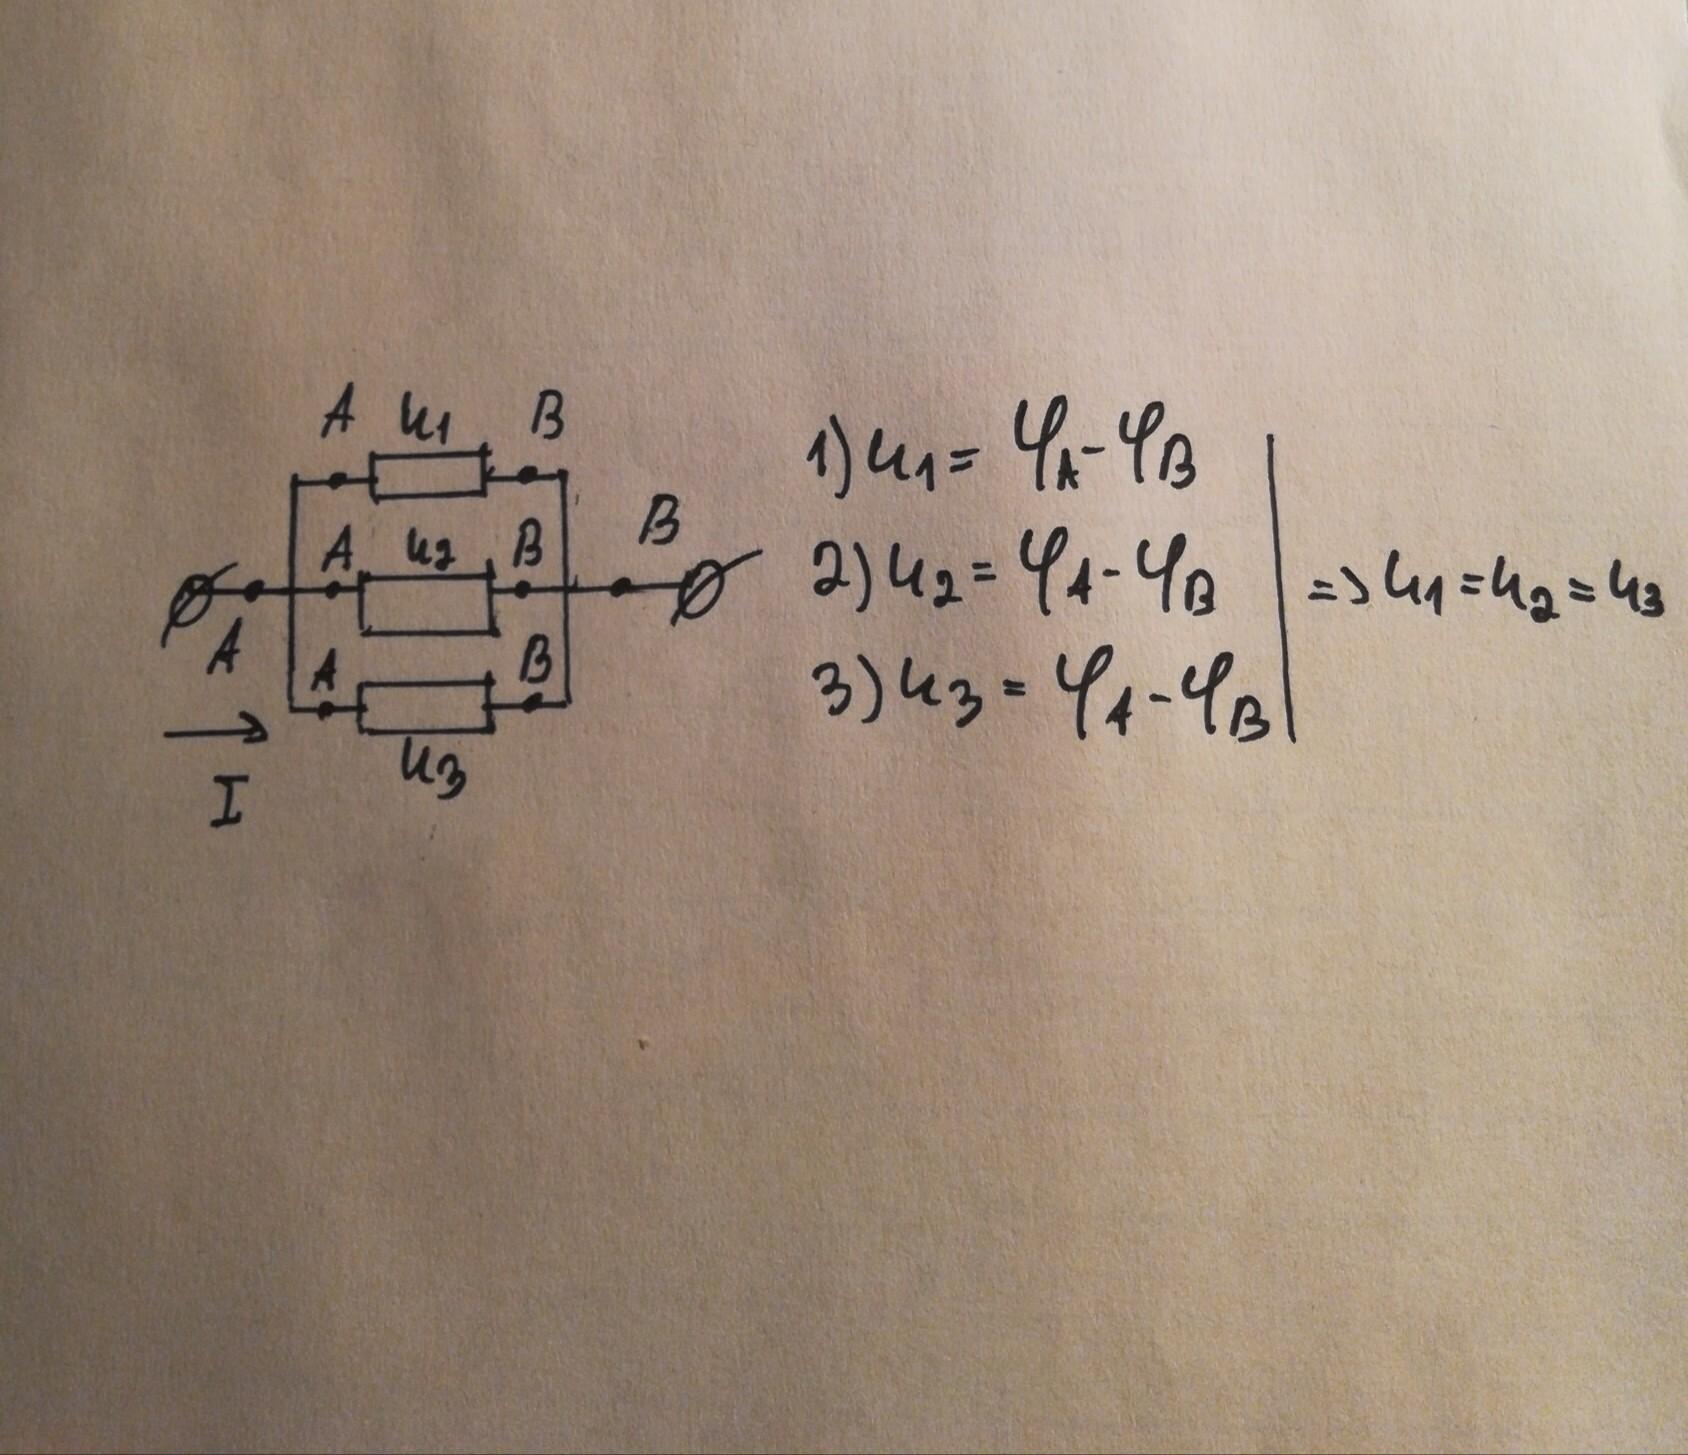 A u1 B
A u2 B
B
A
A B
u3
I
1) u1 = φA - φB
2) u2 = φA - φB
3) u3 = φA - φB
=> u1 = u2 = u3